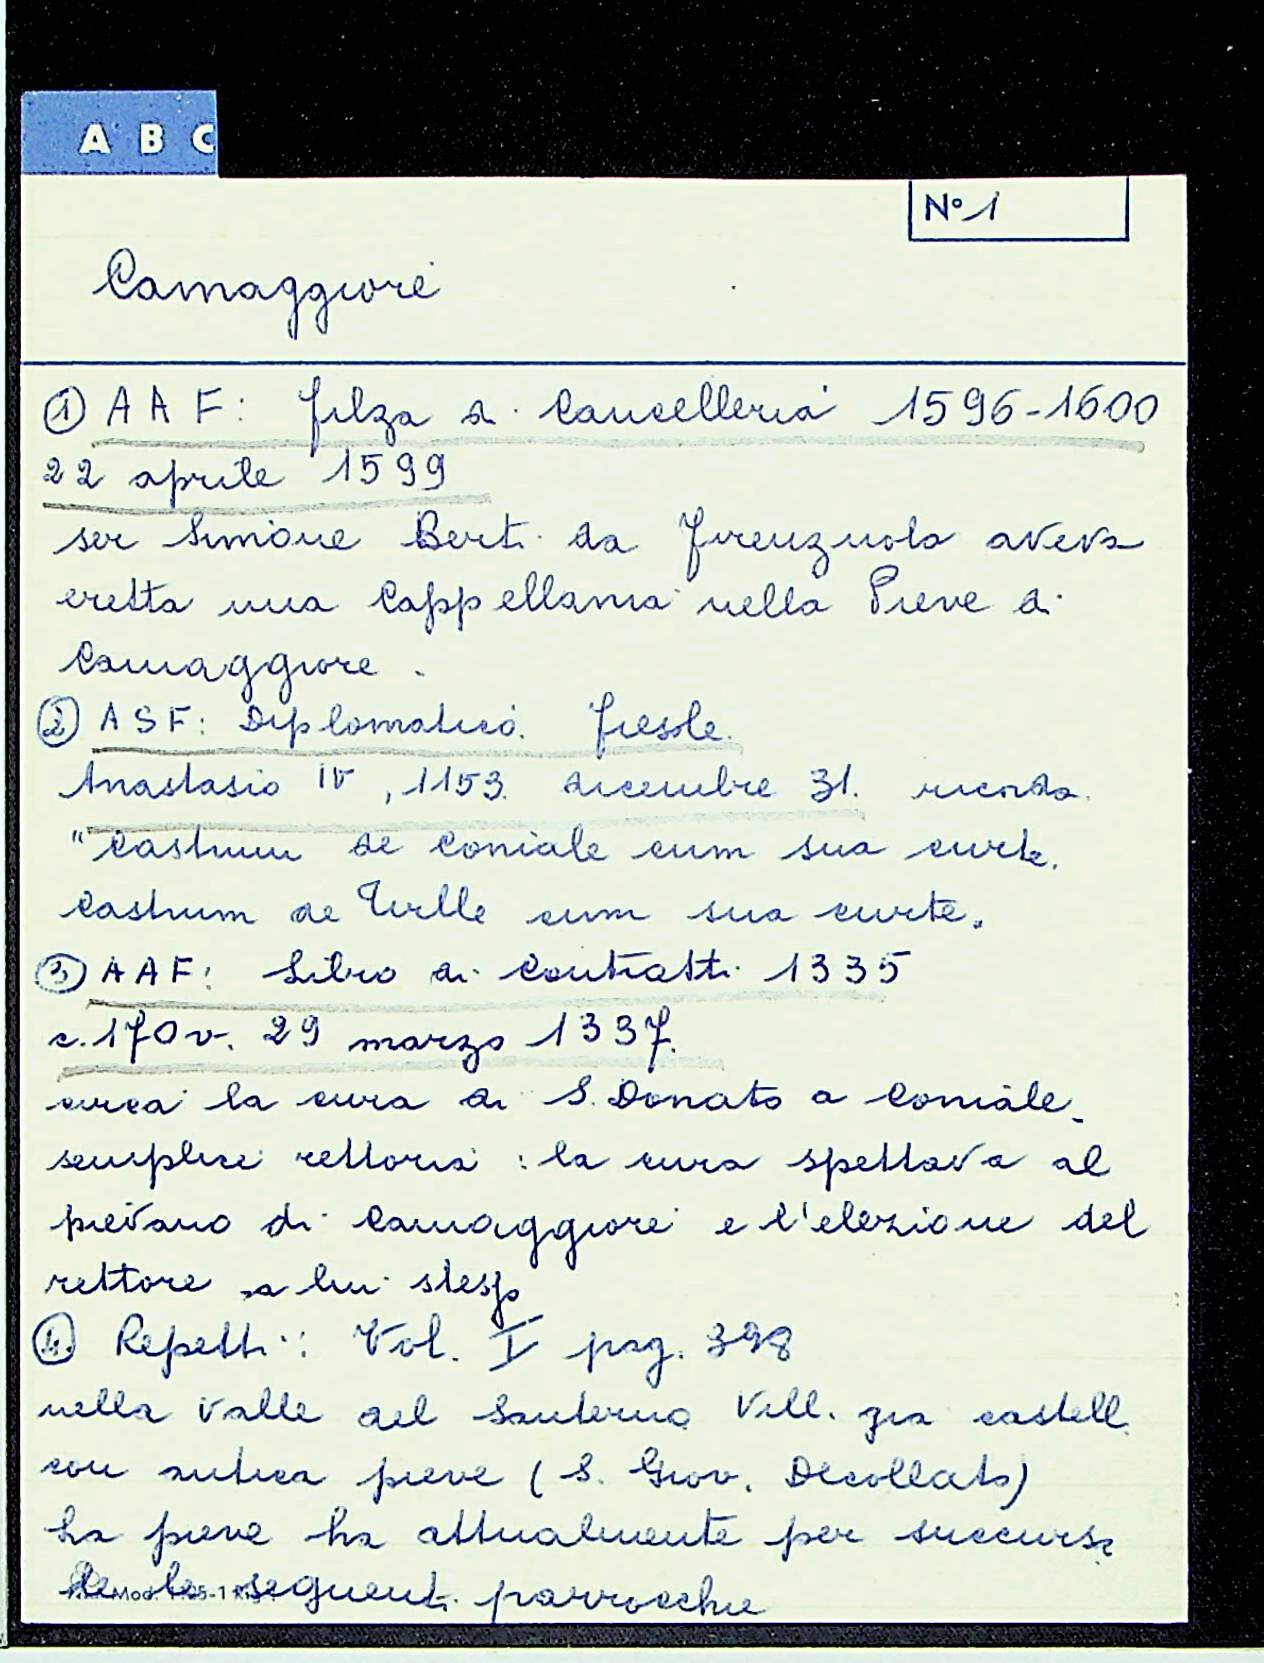 A B C
N° 1
Camaggiore
① A A F: filza di Cancelleria 1596-1600
22 aprile 1599
ser Simone Berti da Firenzuola aveva
eretta una Cappellania nella Pieve di
Camaggiore.
② A S F: Diplomatico. Fiesole.
Anastasio IV, 1153. dicembre 31. ricorda
"Castrum de Coniale cum sua curte.
Castrum de Tirlle cum sua curte.
③ A A F: Libro di Contratti 1335
c. 170v. 29 marzo 1337.
circa la cura di S. Donato a Coniale.
semplice rettoria: la cura spettava al
pievano di Camaggiore e l'elezione del
rettore a lui stesso
④ Repetti: Vol. I pag. 398
nella valle del Santerno Vill. già castell.
con antica pieve (S. Giov. Decollato)
La pieve ha attualmente per succursa
le le seguenti parrocchie